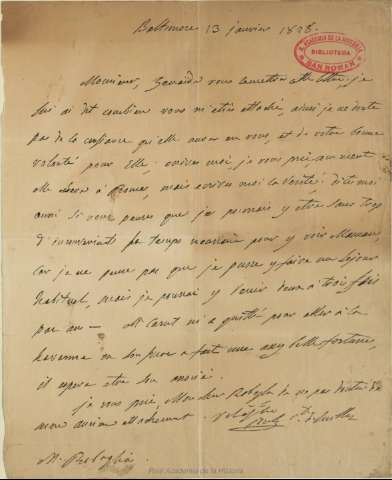 Baltimore 13 janvier 1828.
R. ACADEMIA DE LA HISTORIA
BIBLIOTECA
SAN ROMAN
Monsieur, Zenaide vous remettra cette lettre, je
lui ai dit combien vous m'êtes attaché, ainsi je ne doute
pas de la confiance qu'elle aura en vous, et de votre bonne
volonté pour Elle: écrivez moi, je vous prie, comment
elle sera à Rome, mais écrivez moi la vérité: dites moi
aussi si vous pensez que je pourrais y être sans trop
d'inconvénient le temps nécessaire pour y voir Maman,
car je ne pense pas que je puisse y faire un séjour
habituel, mais je pourrai y venir deux à trois fois
par an — M. Caret m'a quitté pour aller à la
havanne où son frère a fait une assez belle fortune,
il espère être son associé.
je vous prie, Monsieur Re de ne pas douter de
mon ancien attachement.
M. Re
Real Academia de la Historia